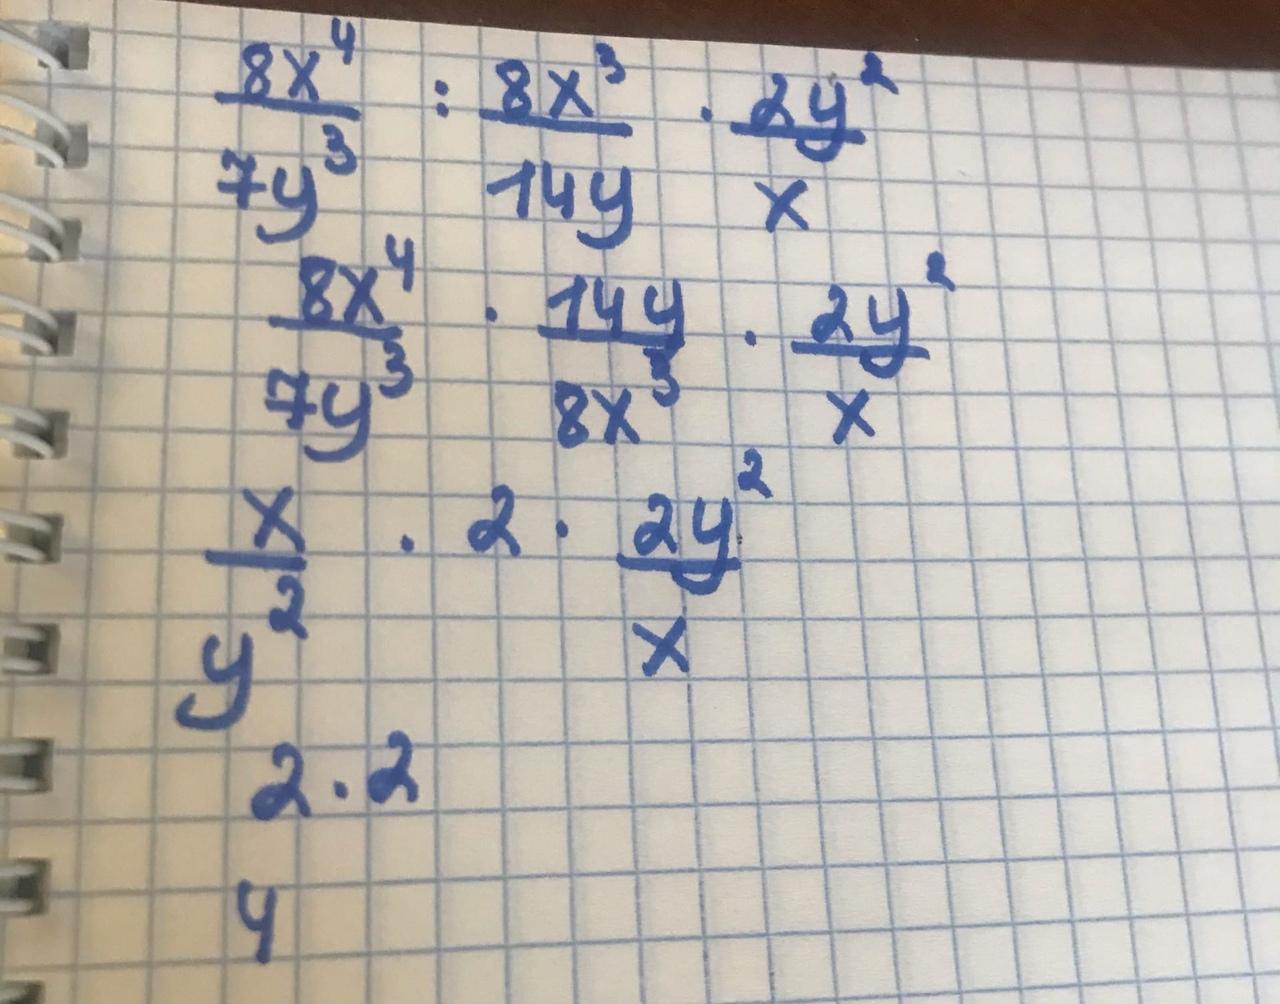 8x⁴/7y³ : 8x³/14y · 2y²/x
8x⁴/7y³ · 14y/8x³ · 2y²/x
x/y² · 2 · 2y²/x
2 · 2
4